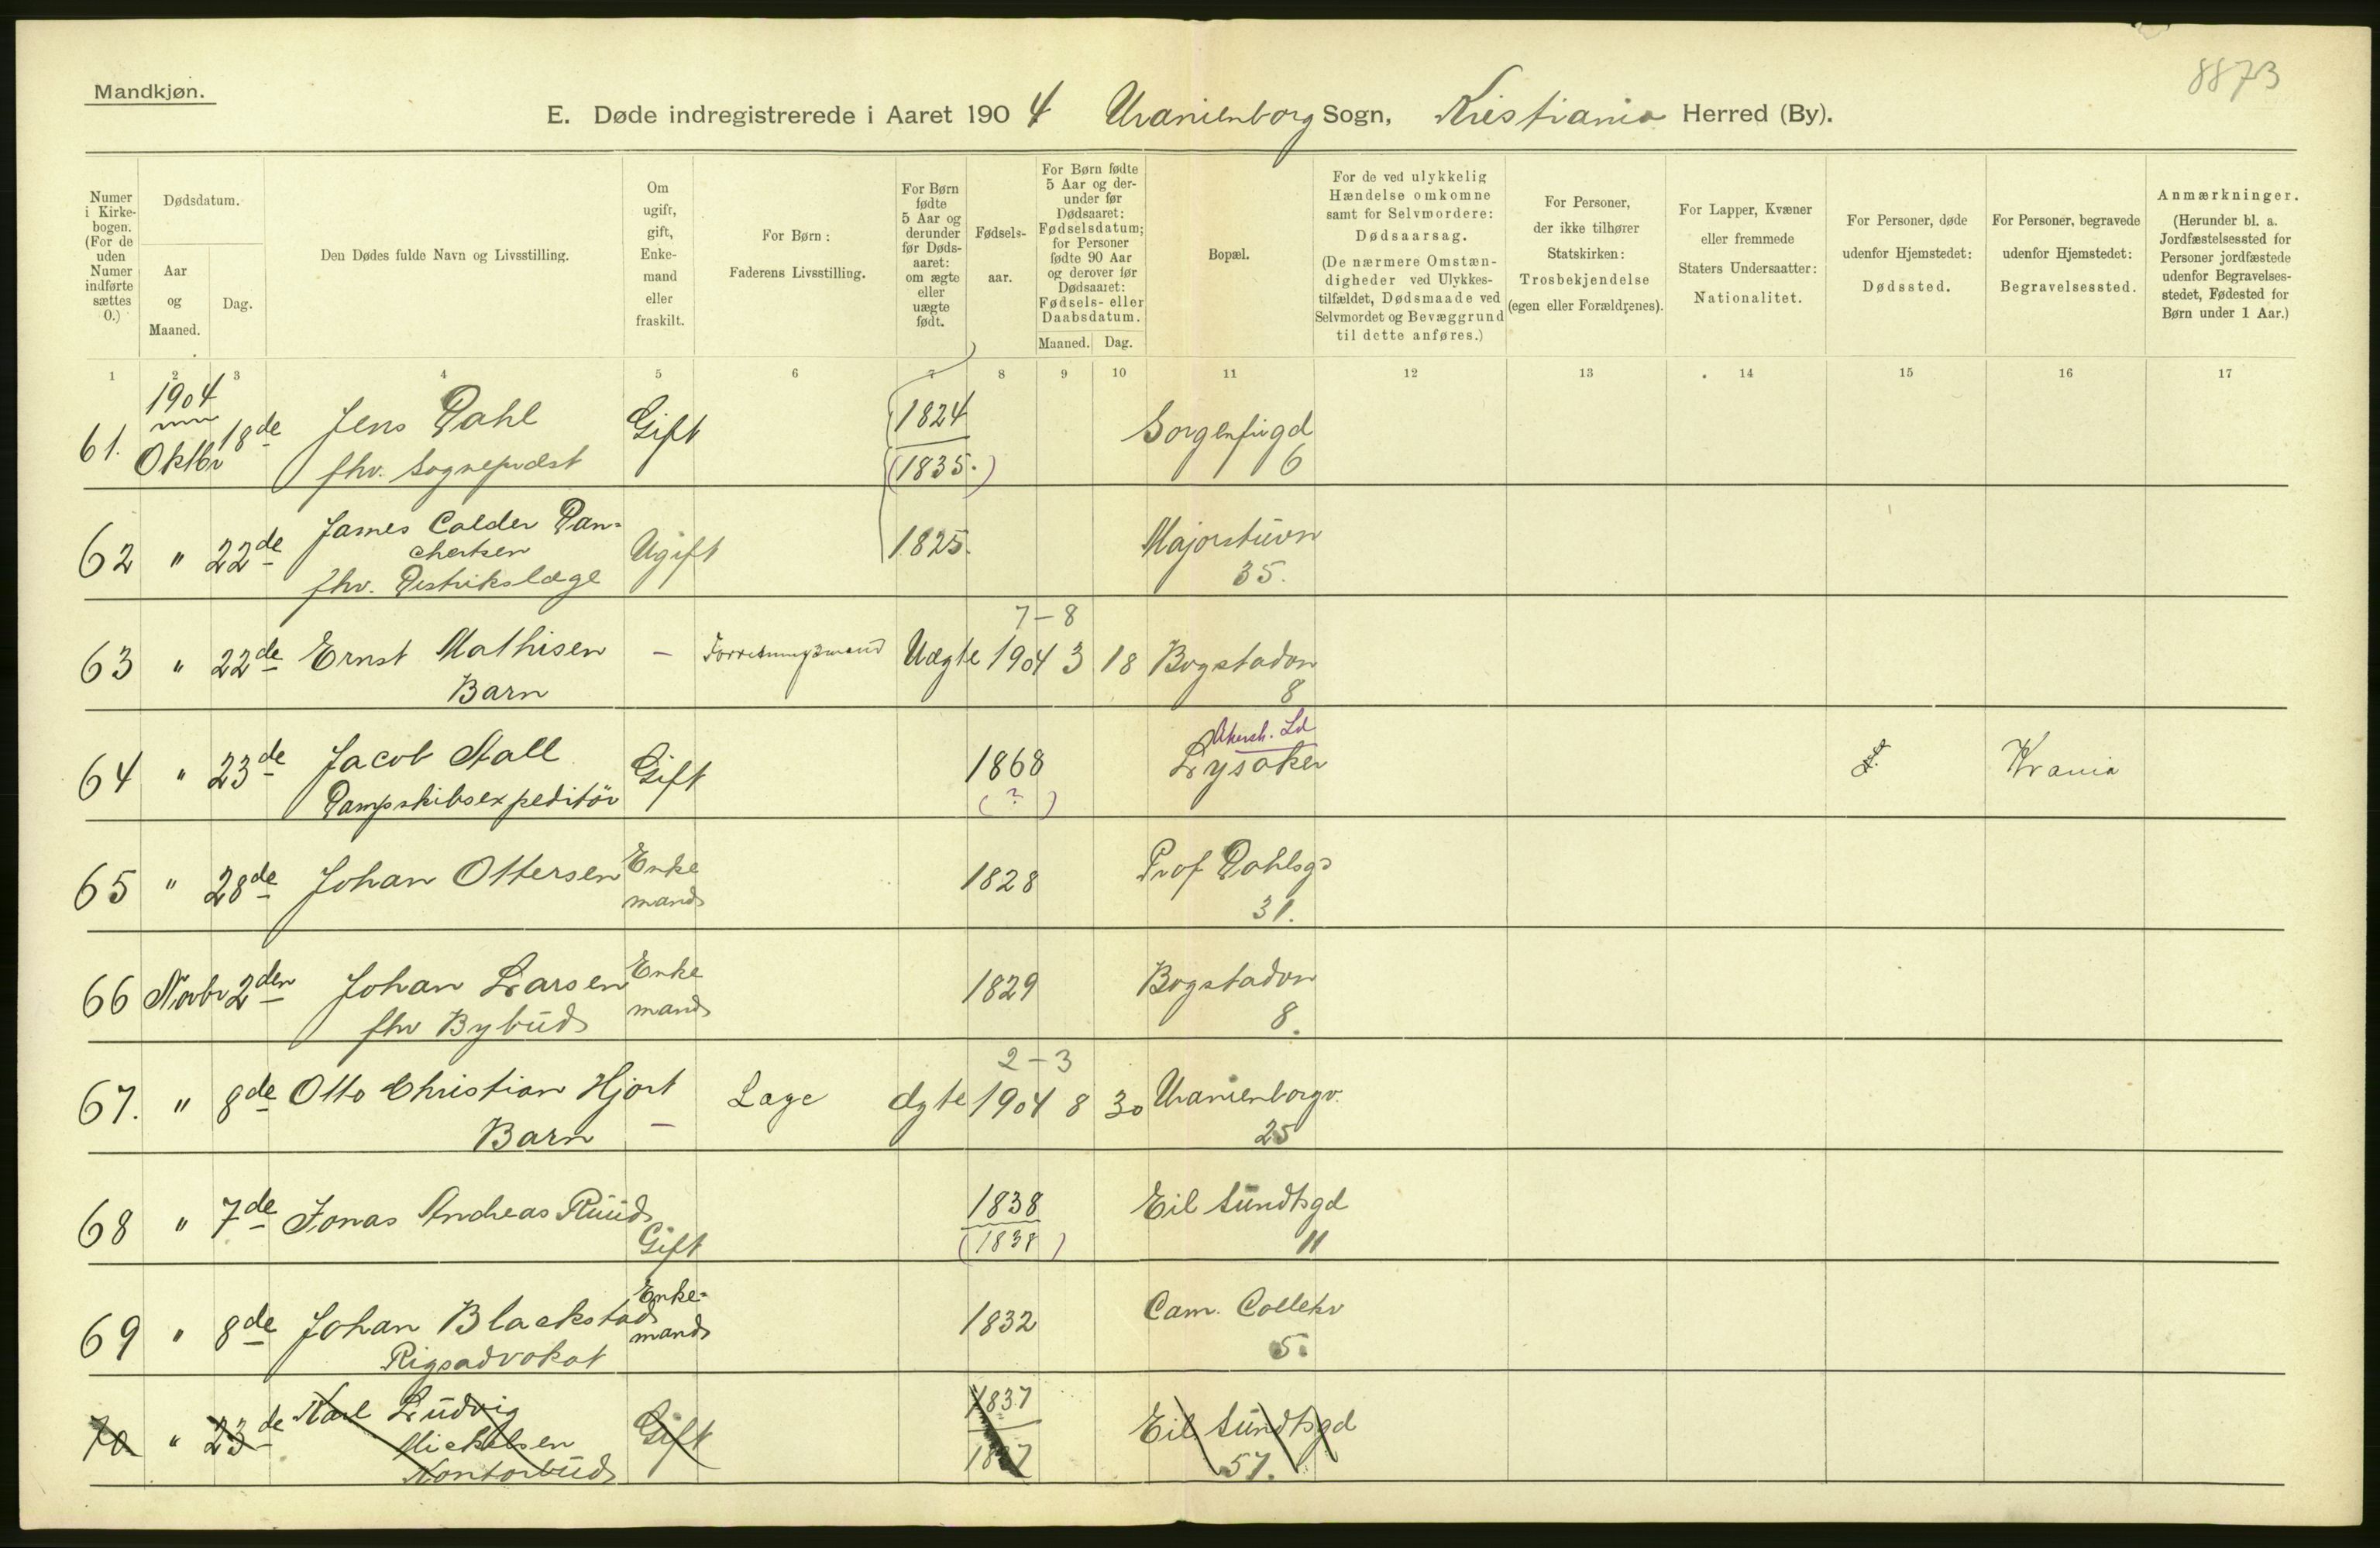 8873
Mandkjøn.
E. Døde indregistrerede i Aaret 1904 Uranienborg Sogn, Kristiania Herred (By).
Numer i Kirkebogen. (For de uden Numer indførte sættes 0.)
Dødsdatum.
Aar og Maaned.
Dag.
Den Dødes fulde Navn og Livsstilling.
Om ugift, gift, Enkemand eller fraskilt.
For Børn: Faderens Livsstilling.
For Børn fødte 5 Aar og derunder før Dødsaaret: om ægte eller uægte født.
Fødselsaar.
For Børn fødte 5 Aar og derunder før Dødsaaret: Fødselsdatum; for Personer fødte 90 Aar og derover før Dødsaaret: Fødsels- eller Daabsdatum.
Maaned. Dag.
Bopæl.
For de ved ulykkelig Hændelse omkomne samt for Selvmordere: Dødsaarsag. (De nærmere Omstændigheder ved Ulykkestilfældet, Dødsmaade ved Selvmordet og Bevæggrund til dette anføres.)
For Personer, der ikke tilhører Statskirken: Trosbekjendelse (egen eller Forældrenes).
For Lapper, Kvæner eller fremmede Staters Undersaatter: Nationalitet.
For Personer, døde udenfor Hjemstedet: Dødssted.
For Personer, begravede udenfor Hjemstedet: Begravelsessted.
Anmærkninger. (Herunder bl. a. Jordfæstelsessted for Personer jordfæstede udenfor Begravelsesstedet, Fødested for Børn under 1 Aar.)
1 2 3 4 5 6 7 8 9 10 11 12 13 14 15 16 17
1904
61. Oktbr 18de Jens Dahl Gift 1824 Sorgenfrigd
fhv. Sogneprest (1835.) 6
62 " 22de James Calder Dan-
chertsen Ugift 1825. Majorstuvn
fhv. Distrikslæge 35.
7-8
63 " 22de Ernst Mathisen - Forretningsmand Uægte 1904 3 18 Bogstadvn
Barn 8
Akersh. Ld
64 " 23de Jacob Stall Gift 1868 Lysaker Krania
Dampskibsexpeditør (?)
65 " 28de Johan Ottersen Enke 1828 Prof Dahlsgd
mand 31.
66 Novbr 2den Johan Larsen Enke 1829 Bogstadvn
fhv Bybud mand 8.
2-3
67. " 8de Otto Christian Hjort Læge Ægte 1904 8 30 Uranienborgv.
Barn - 25
68 " 7de Jonas Andreas Ruud 1838 Eil Sundtsgd
Gift (1838) 11
69 " 8de Johan Blackstad Enke- 1832 Cam. Colletsv
Rigsadvokat mand 5.
70 " 23de Karl Ludvig Gift 1837 Eil Sundtsgd
Mickelsen
Kontorbud 57.